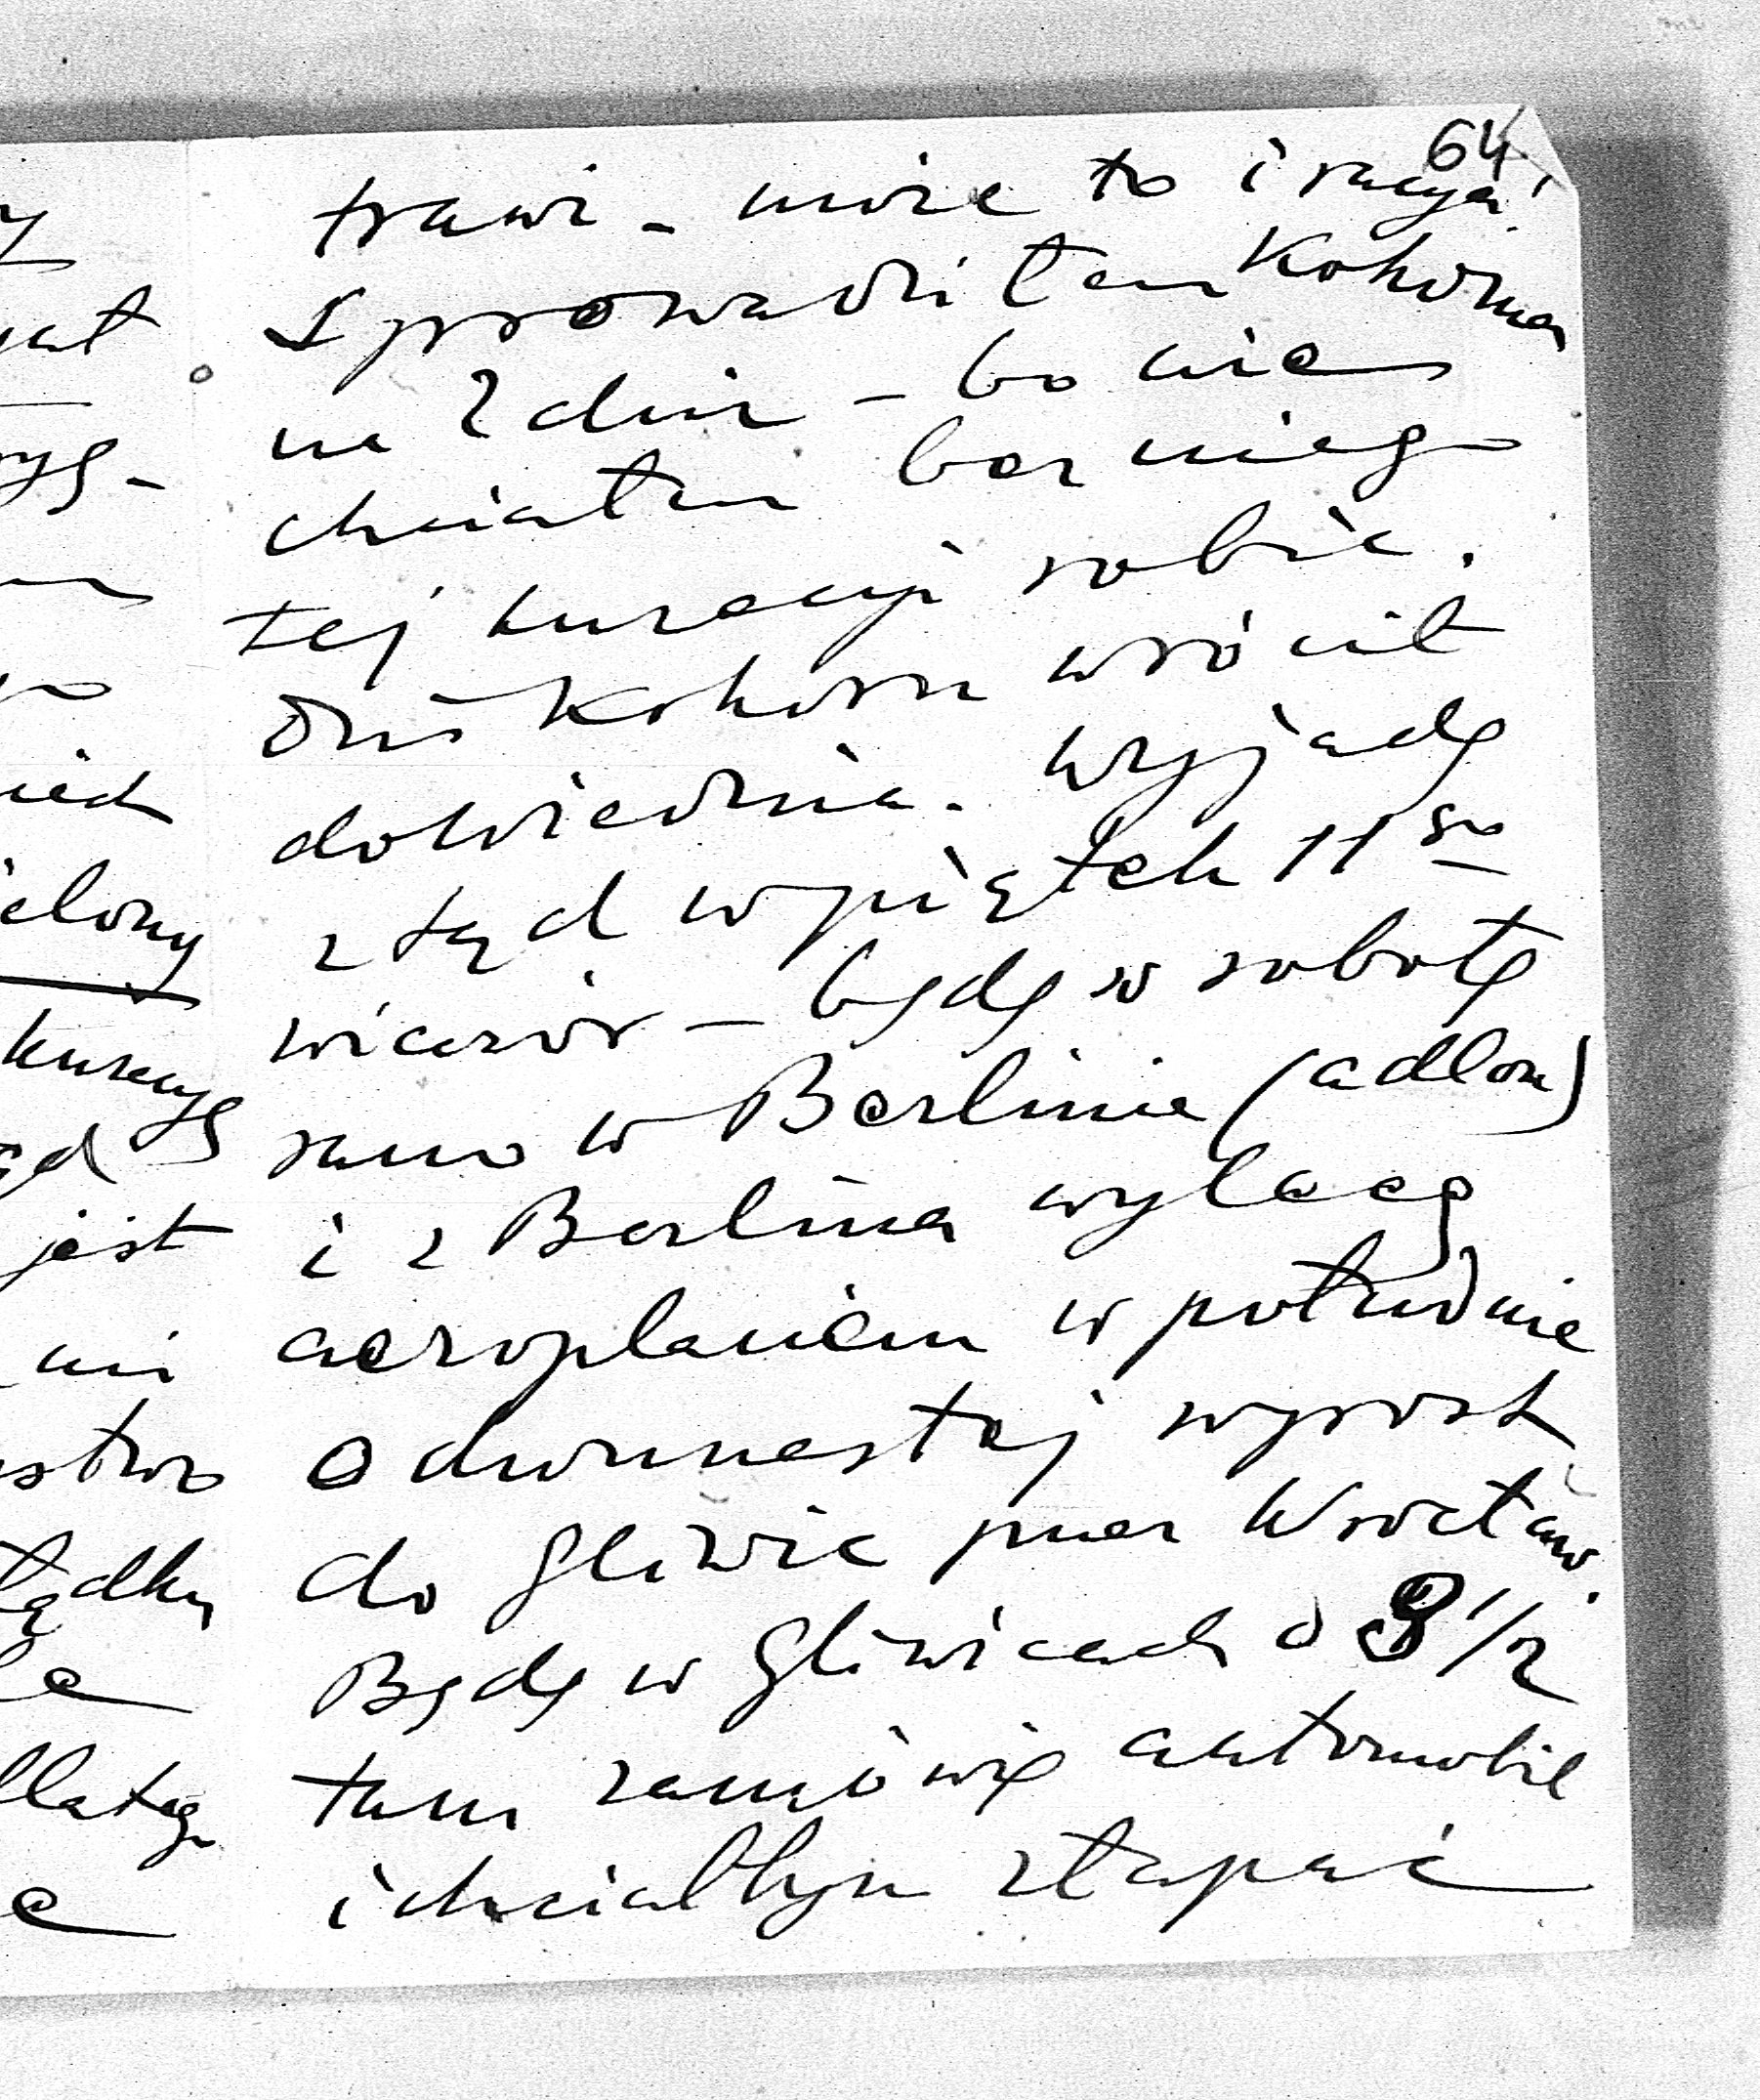 64
trawi - może to i racya!
Sprowadziłem Kohorna
na 2 dni - bo nie
chciałem bez niego
tej kuracyi robić.
Dziś Kohorn wrócił
do Wiednia. Wyjadę
ztąd w piątek 11go
wieczór - będę w sobotę
rano w Berlinie (Adlon)
i z Berlina wylecę
aeroplanem w południe
o dwunastej wprost
do Gliwic przez Wrocław.
Będę w Gliwicach o 3 1/2
tam zamówię automobil
i chciałbym złapać
jest